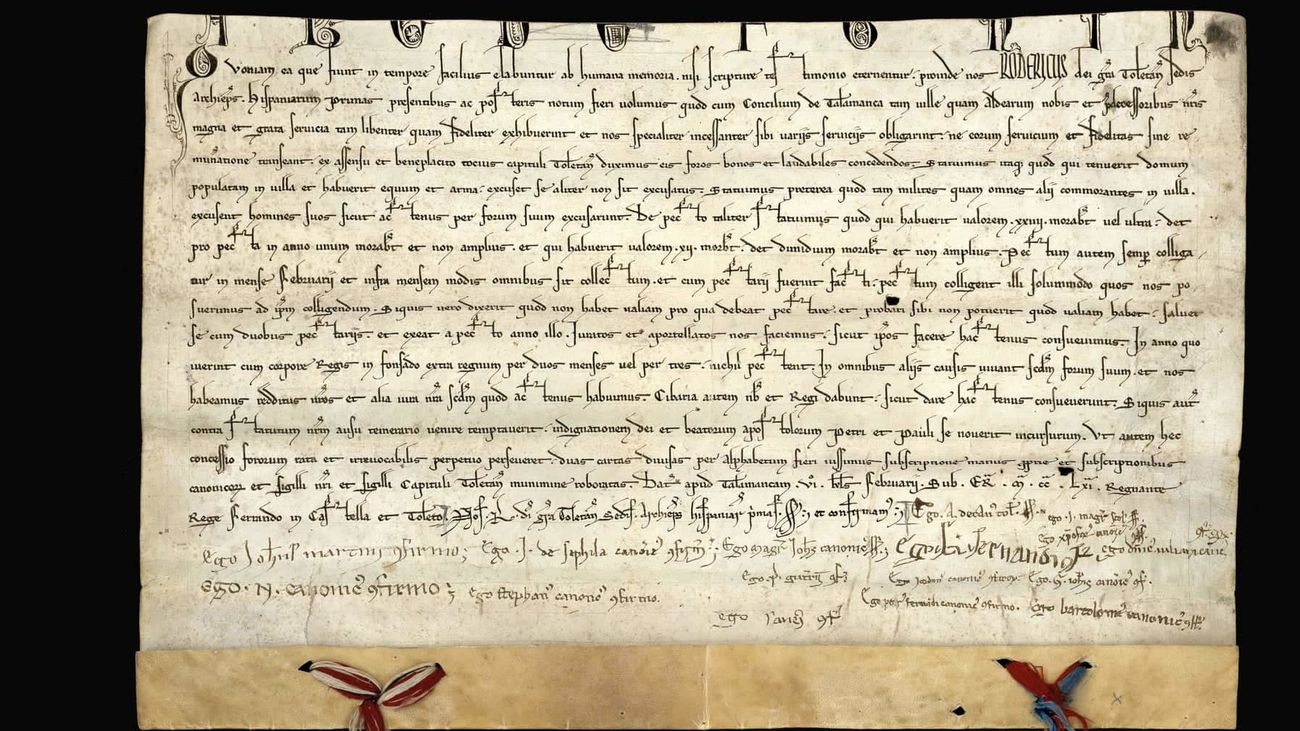 A B C D E F G H I K
Quoniam ea que fiunt in tempore facilius elabuntur ab humana memoria. nisi scripture testimonio eternentur: proinde nos RODERICUS dei gra Toletan sedis
Archieps. hispaniarum primas presentibus ac posteris notum fieri volumus quod cum Concilium de Talamanca tam ville quam Aldearum nobis et predecessoribus nris
magna et grata servicia tam libenter quam fideliter exhibuerint et nos specialiter incessanter sibi variis serviciis obligarint: ne eorum servicium et fidelitas sine re
muneratione transeant: ex assensu et beneplacito tocius capituli Toletan duximus eis foros bonos et laudabiles concedendos. Statuimus itaque quod qui tenuerit domum
populatam in villa et habuerit equum et arma: excuset se aliter non sit excusatus. Statuimus preterea quod tam milites quam omnes alii commorantes in villa.
excusent homines suos sicut actenus per forum suum excusarunt. De pecto taliter statuimus quod qui habuerit valorem .xxiiii. morabt vel ultra: det
pro pecta in anno unum morabt et non amplius. et qui habuerit valorem .xii. morbt: det dimidium morabt et non amplius. Pectum autem semp colliga
tur in mense Februarii et infra mensem modis omnibus sit collectum. et cum pectarii fuerint facti: pectum colligent illi solummodo quos nos po
suerimus ad ipm colligendum. Siquis vero dixerit quod non habet valiam pro qua debeat pectare. et probari sibi non potuerit quod valiam habet: salvet
se cum duobus pectariis. et exeat a pecto anno illo. Iuratos et aportellatos nos faciemus: sicut ipos facere hactenus consuevimus. In anno quo
iverint cum corpore Regis in fonsado extra regnum per duos menses vel per tres: nichil pectent. In omnibus aliis causis vivant scdm forum suum. et nos
habeamus redditus nros et alia iura nra scdm quod actenus habuimus. Cibaria autem nb et Regi dabunt: sicut dare hactenus consueverunt. Siquis aut
contra statutum nrm ausu temerario venire temptaverit: indignationem dei et beatorum apostolorum Petri et Pauli se noverit incursurum. Ut autem hec
concessio fororum rata et irrevocabilis perpetuo perseveret: duas cartas divisas per alphabetum fieri iussimus subscriptione manus proprie et subscriptionibus
canonicor et sigilli nri et sigilli Capituli Toletan munimine roboratas. Dat apud Talamancam. vi. kls Februarii. Sub. Er. m. cc. Lxi. Regnante
Rege Ferrando in Castella et Toleto. Nos R. di gra Toletan Sedis Archieps hispaniar primas SS. et confirmamus. Ego. A. decan tol. SS. ego. J. magr scol SS.
Ego Johnis martini confirmo; Ego. J. de septila canonic Ego Magr Johs canonic SS.
Ego. N. canonic confirmo; Ego stephan canonic confirmo. Ego. p. Ego bartolome canonic
ego